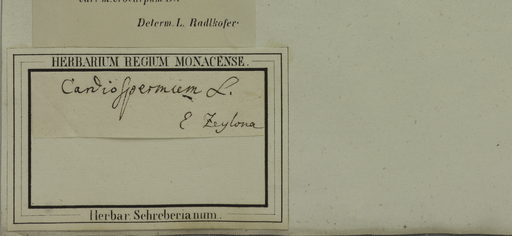 Determ. L. Radlkofer.
HERBARIUM REGIUM MONACENSE.
Cardiospermum L.
E Zeylona
Herbar. Schreberianum.